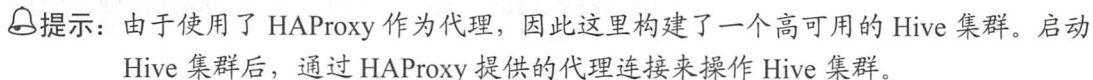 提示：由于使用了 HAProxy 作为代理，因此这里构建了一个高可用的 Hive 集群。启动
Hive 集群后，通过 HAProxy 提供的代理连接来操作 Hive 集群。